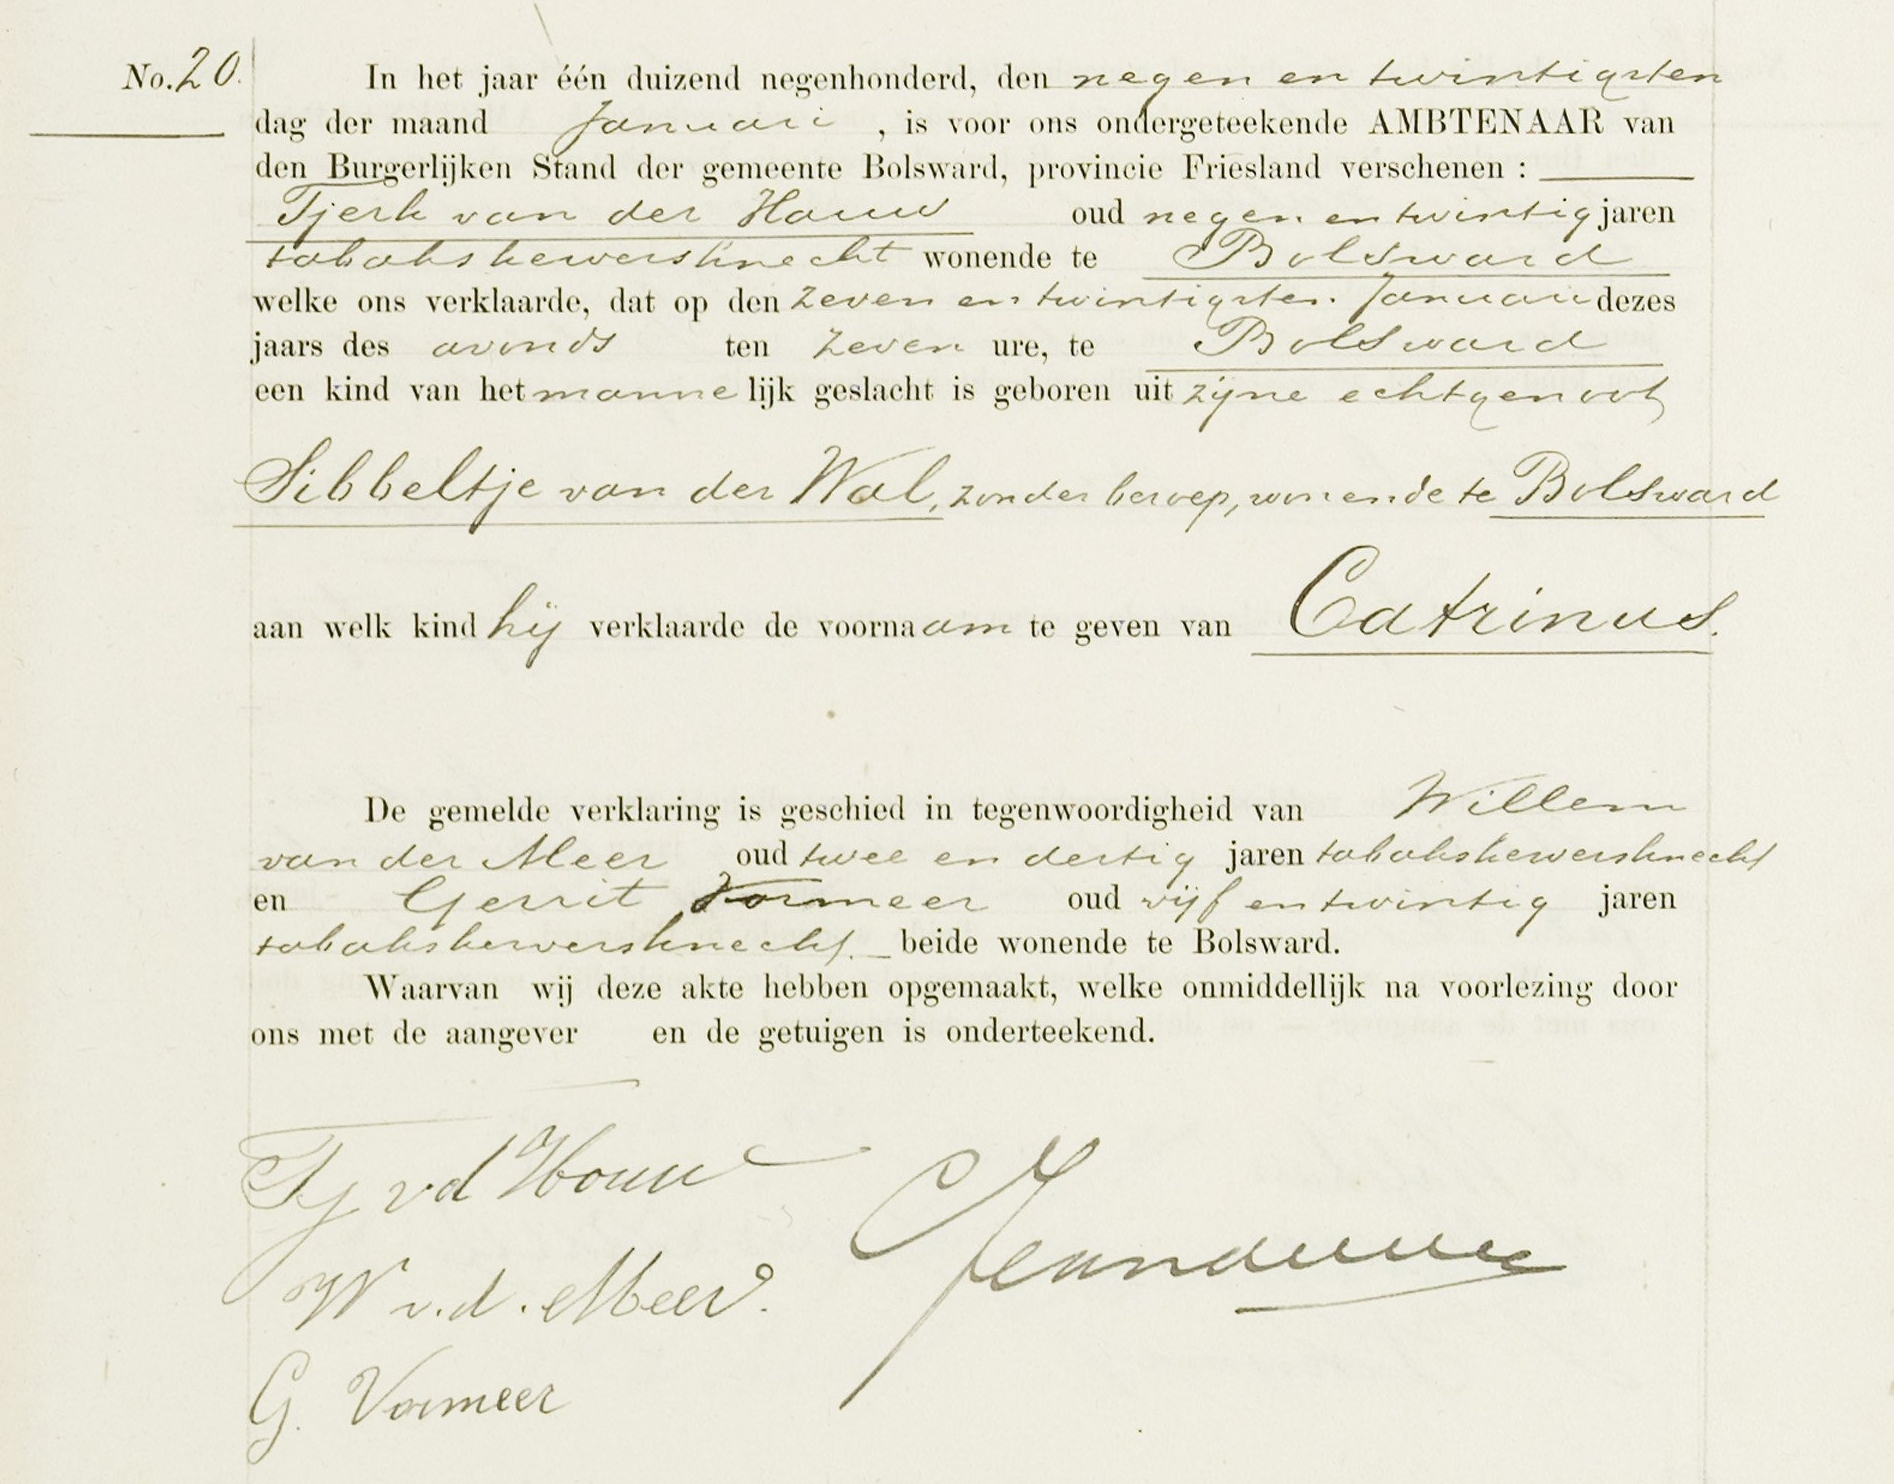 No. 20.
In het jaar één duizend negenhonderd, den negen en twintigsten
dag der maand Januari , is voor ons ondergeteekende AMBTENAAR van
den Burgerlijken Stand der gemeente Bolsward, provincie Friesland verschenen :
Tjerk van der Houw oud negen en twintig jaren
tabakskerversknecht wonende te Bolsward
welke ons verklaarde, dat op den zeven en twintigsten Januari dezes
jaars des avonds ten zeven ure, te Bolsward
een kind van het mannelijk geslacht is geboren uit zijne echtgenoot
Sibbeltje van der Wal, zonder beroep, wonende te Bolsward
aan welk kind hij verklaarde de voornaam te geven van Catrinus.
De gemelde verklaring is geschied in tegenwoordigheid van Willem
van der Meer oud twee en dertig jaren tabakskerversknecht
en Gerrit Vormeer oud vijf en twintig jaren
tabakskerversknecht. beide wonende te Bolsward.
Waarvan wij deze akte hebben opgemaakt, welke onmiddellijk na voorlezing door
ons met de aangever en de getuigen is onderteekend.
Tj vd Houw
W v.d. Meer.
G. Vormeer